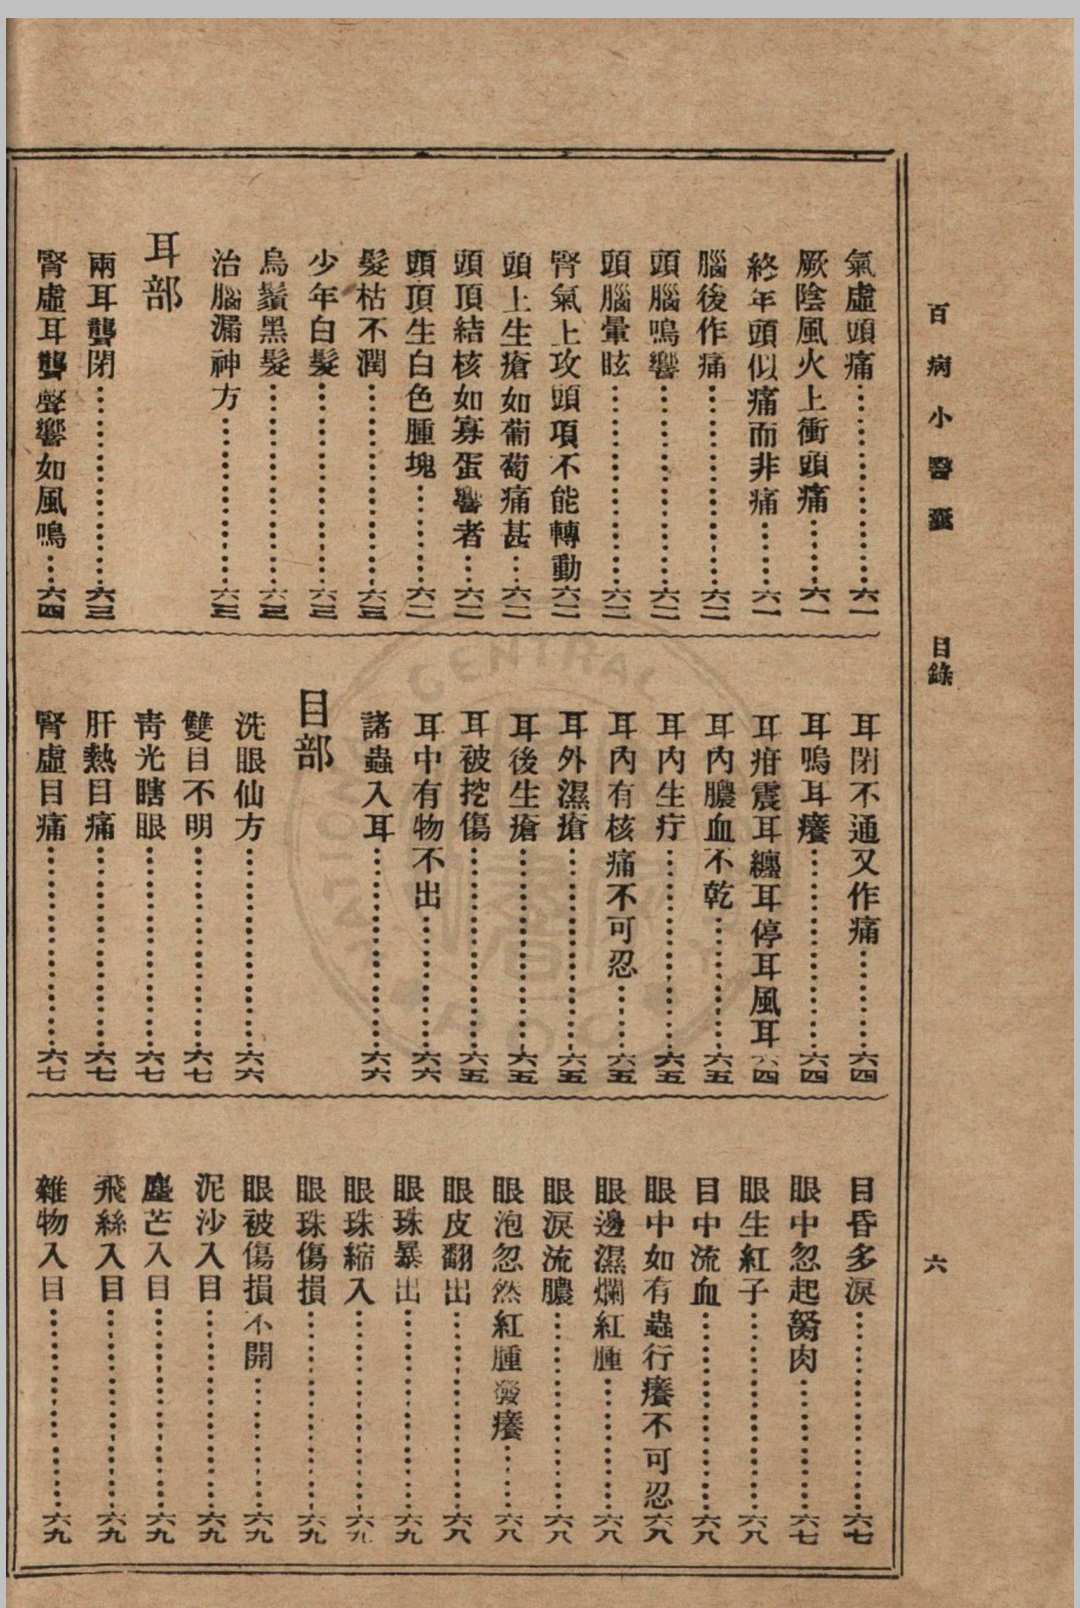 百病小醫囊　目錄　六
氣虛頭痛……六一
厥陰風火上衝頭痛……六一
終年頭似痛而非痛……六一
腦後作痛……六二
頭腦鳴響……六二
頭腦暈眩……六二
腎氣上攻頭項不能轉動六二
頭上生瘡如葡萄痛甚……六二
頭頂結核如寡蛋響者……六二
頭頂生白色腫塊……六二
髮枯不潤……六三
少年白髮……六三
烏鬚黑髮……六三
治腦漏神方……六三
耳部
兩耳聾閉……六三
腎虛耳聾聲響如風鳴……六四
耳閉不通又作痛……六四
耳鳴耳癢……六四
耳疳震耳纏耳停耳風耳六四
耳內膿血不乾……六五
耳內生疔……六五
耳內有核痛不可忍……六五
耳外濕瘡……六五
耳後生瘡……六五
耳被挖傷……六五
耳中有物不出……六六
諸蟲入耳……六六
目部
洗眼仙方……六六
雙目不明……六七
青光瞎眼……六七
肝熱目痛……六七
腎虛目痛……六七
目昏多淚……六七
眼中忽起胬肉……六七
眼生紅子……六八
目中流血……六八
眼中如有蟲行癢不可忍六八
眼邊濕爛紅腫……六八
眼淚流膿……六八
眼泡忽然紅腫發癢……六八
眼皮翻出……六八
眼珠暴出……六九
眼珠縮入……六九
眼珠傷損……六九
眼被傷損不開……六九
泥沙入目……六九
塵芒入目……六九
飛絲入目……六九
雜物入目……六九